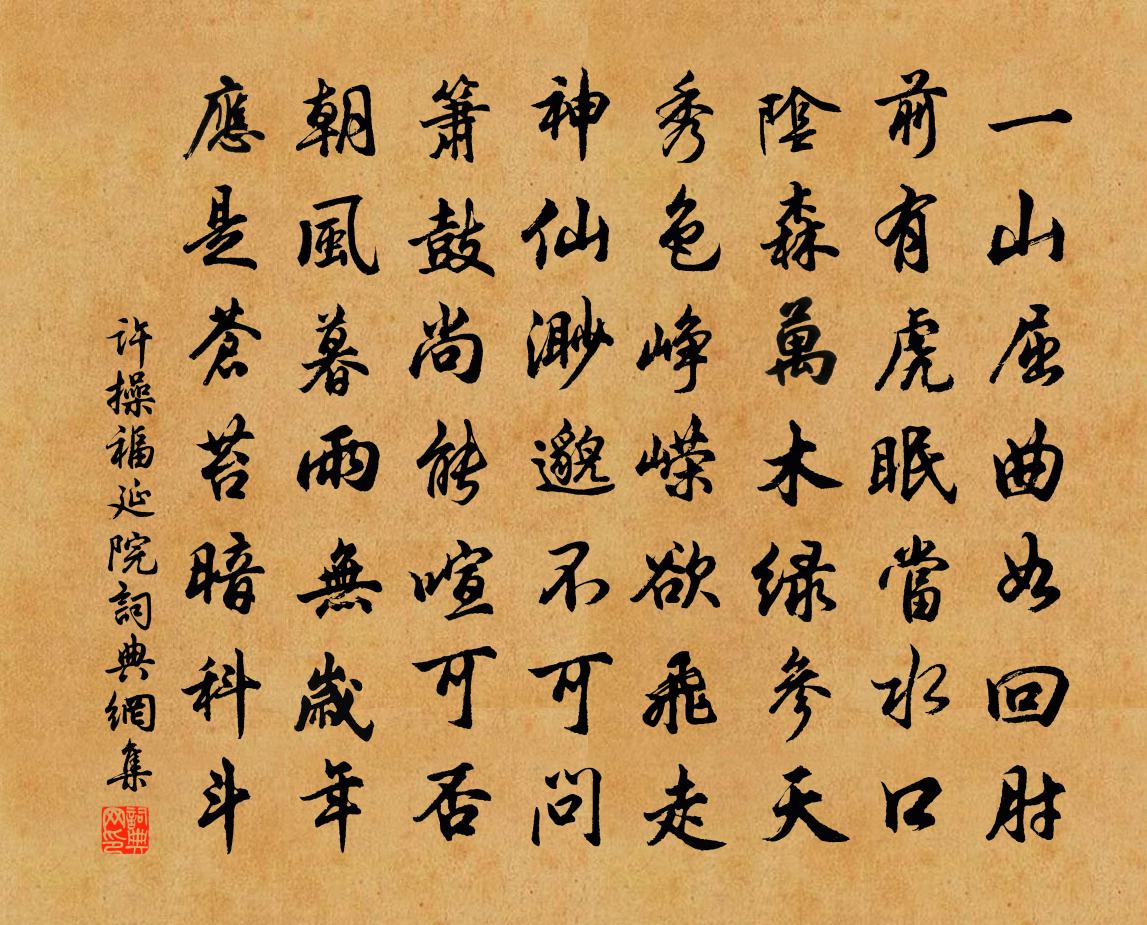 一山屈曲如回肘
前有虎眠當水口
陰森萬木綠參天
秀色崢嶸欲飛走
神仙渺邈不可問
簫鼓尚能喧可否
朝風暮雨無歲年
應是蒼苔暗科斗
許操福延院詞典網集
詞典网印